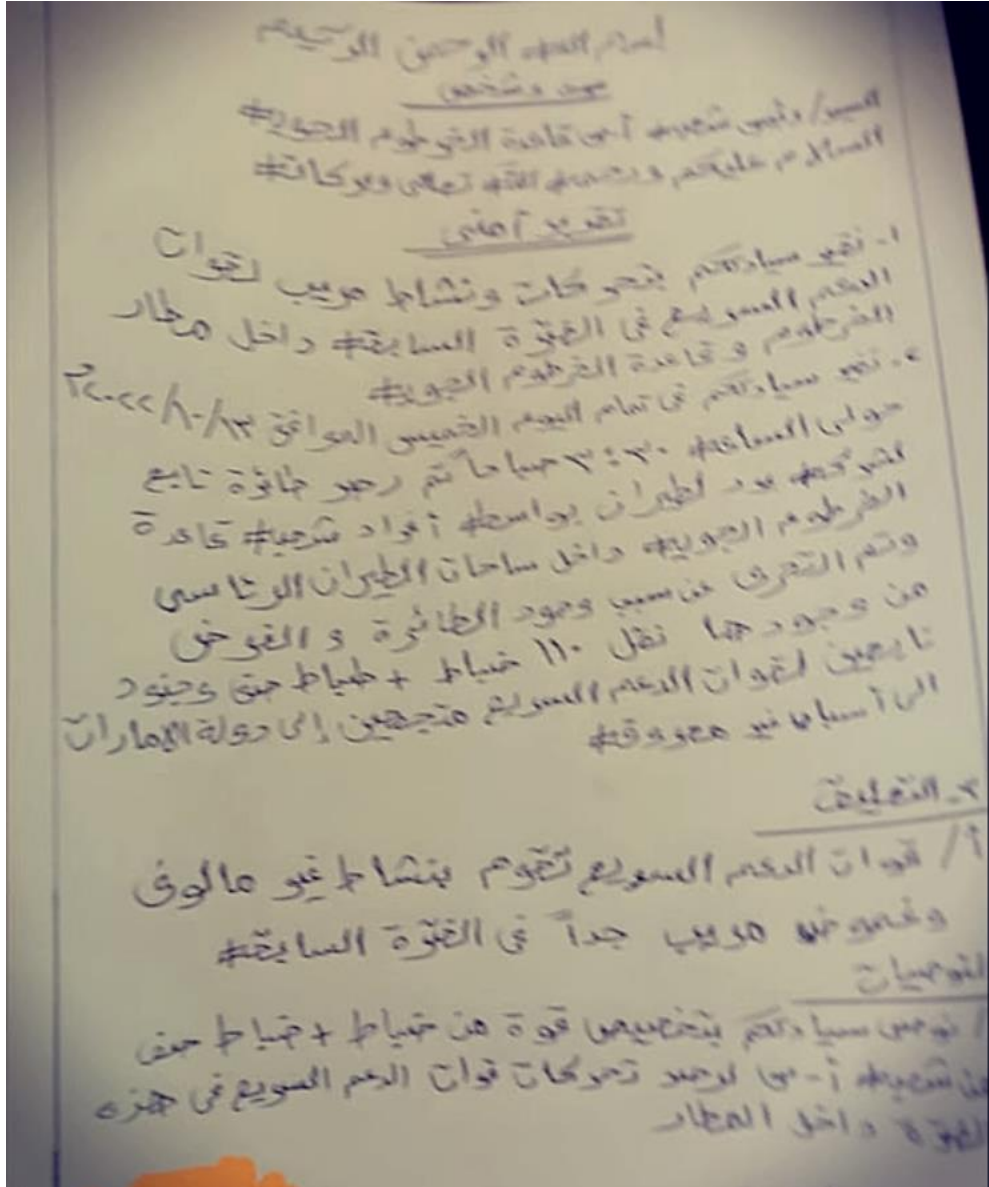 بسم الله الرحمن الرحيم
سري وشخصي
السيد/ رئيس شعبة أ-س قاعدة الخرطوم الجوية
السلام عليكم ورحمة الله تعالى وبركاته
تقرير أمني
١- نفيد سيادتكم بتحركات ونشاط مريب لقوات
الدعم السريع في الفترة السابقة داخل مطار
الخرطوم وقاعدة الخرطوم الجوية
٢- نفيد سيادتكم في تمام اليوم الخميس الموافق ١٣/١٠/٢٠٢٢م
حوالى الساعة ٣:٣٠ صباحاً تم رصد طائرة تابع
لشركة بدر لطيران بواسطة أفراد شعبة قاعدة
الخرطوم الجوية داخل ساحات الطيران الرئاسي
وتم التحري عن سبب وجود الطائرة و الغرض
من وجودها نقل ١١٠ ضباط + ضباط صف وجنود
تابعين لقوات الدعم السريع متجهين إلى دولة الإمارات
الى أسباب غير معروفة
٣- التعليق
أ/ قوات الدعم السريع تقوم بنشاط غير مالوف
وغموض مريب جداً في الفترة السابقة
التوصيات
/ نوصي سيادتكم بتخصيص قوة من ضباط + ضباط صف
من شعبة أ-س لرصد تحركات قوات الدعم السريع في هذه
الفترة داخل المطار